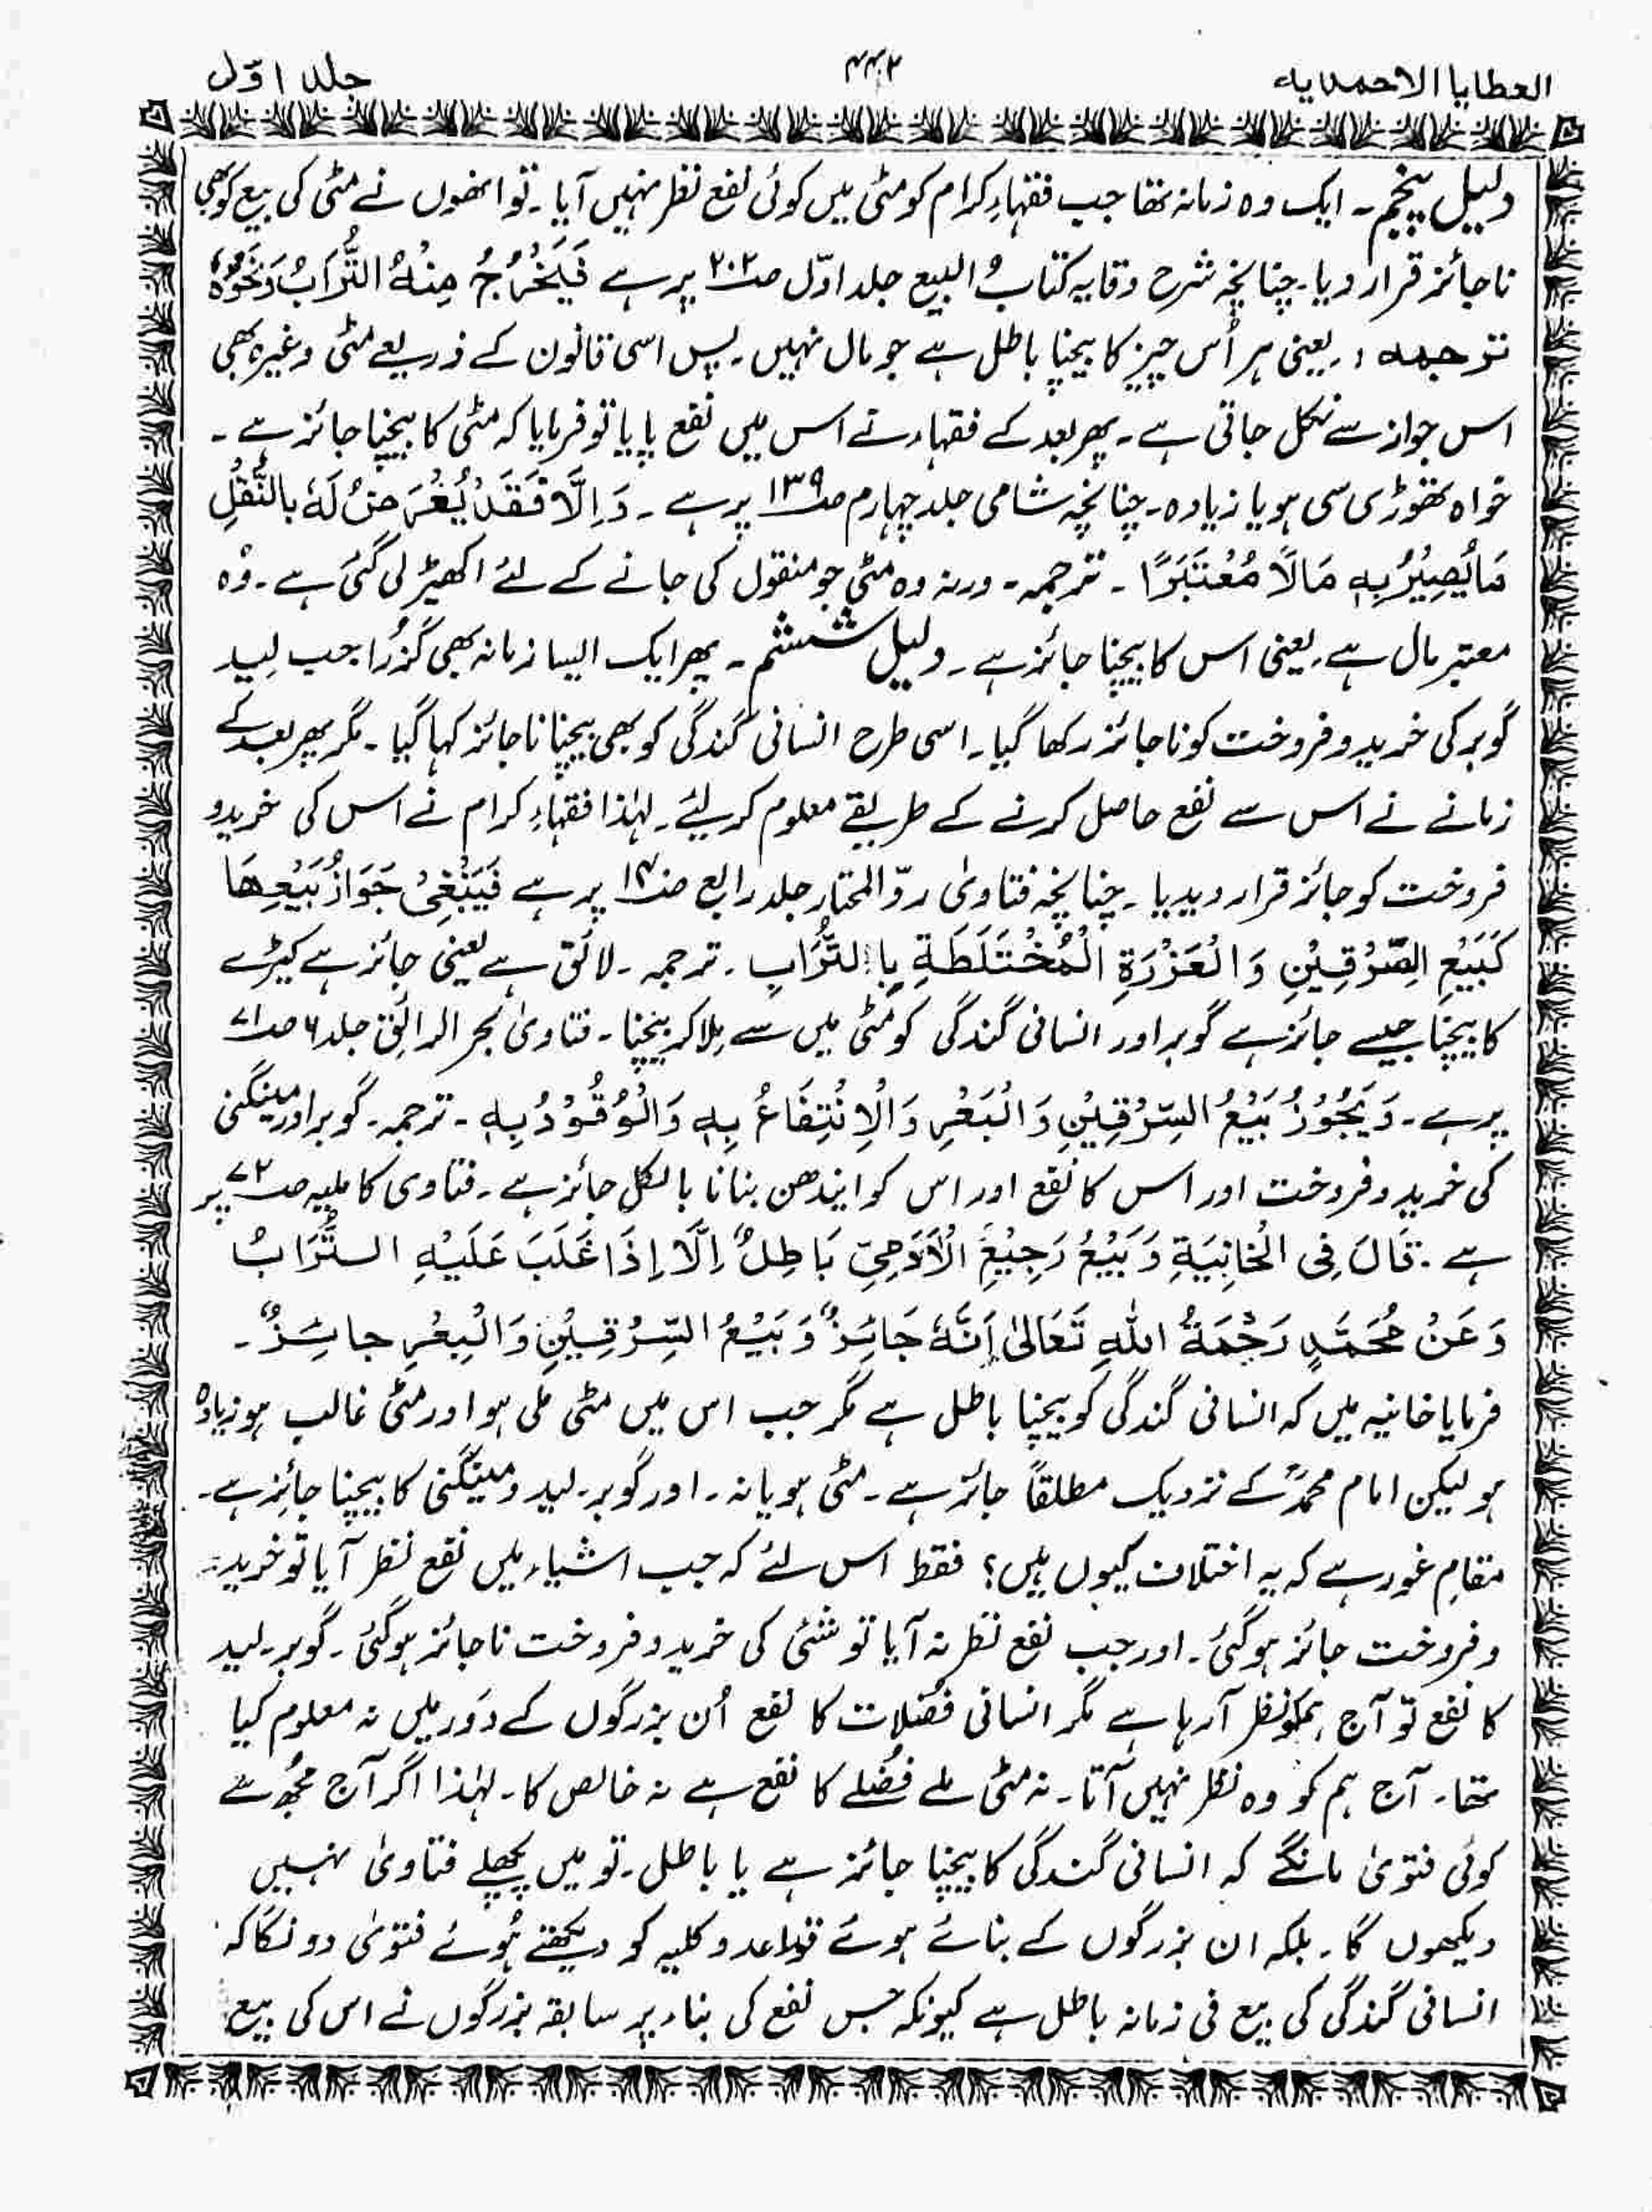 العطایا الاحمدیہ
جلد اوّل
دلیل پنجم۔ ایک وہ زمانہ تھا جب فقہاءِ کرام کو مٹی میں کوئی نفع نظر نہیں آیا۔ تو انھوں نے مٹی کی بیع کو بھی
ناجائز قرار دیا۔ چنانچہ شرح وقایہ کتابُ البیع جلد اوّل صـ۲۰۲ پر ہے فَیَخْرُجُ مِنْہُ التُّرَابُ وَنَحْوُہٗ
ترجمہ :۔ یعنی ہر اُس چیز کا بیچنا باطل ہے جو مال نہیں۔ پس اسی قانون کے ذریعے مٹی وغیرہ بھی
اس جواز سے نکل جاتی ہے۔ پھر بعد کے فقہاء نے اس میں نفع پایا تو فرمایا کہ مٹی کا بیچنا جائز ہے۔
خواہ تھوڑی سی ہو یا زیادہ۔ چنانچہ شامی جلد چہارم صـ۱۳۹ پر ہے۔ وَاِلَّا فَقَدْ یُعْرَضُ لَہٗ بالنَّقْلِ
مَا یُصِیْرُ بِہٖ مَالًا مُعْتَبَرًا ۔ ترجمہ۔ ورنہ وہ مٹی جو منقول کی جانے کے لئے اکھیڑ لی گئی ہے۔ وُہ
معتبر مال ہے۔ یعنی اس کا بیچنا جائز ہے۔ دلیل ششم۔ پھر ایک ایسا زمانہ بھی گزُرا جب لِید
گوبر کی خرید و فروخت کو ناجائز رکھا گیا۔ اسی طرح انسانی گندگی کو بھی بیچنا ناجائز کہا گیا۔ مگر پھر بعد کے
زمانے نے اس سے نفع حاصل کرنے کے طریقے معلوم کر لیئے۔ لہٰذا فقہاءِ کرام نے اس کی خرید و
فروخت کو جائز قرار دیدیا۔ چنانچہ فتاویٰ ردّ المختار جلد رابع صـ پر ہے فَیَنْبَغِیْ جَوَازُ بَیْعِھَا
کَبَیْعِ الصِّرْقِیْنِ وَالْعَزْرَۃِ الْمُخْتَلَطَۃِ بِالتُّرَابِ۔ ترجمہ۔ لائق ہے یعنی جائز ہے کیڑے
کا بیچنا جیسے جائز ہے گوبر اور انسانی گندگی کو مٹی میں سے مِلا کر بیچنا۔ فتاویٰ بحر الرائق جلد ۶ صـ۷۱
پر ہے۔ وَیَجُوْزُ بَیْعُ السِّرْقِیْنِ وَالْبَعْرِ وَالْاِنْتِفَاعُ بِہٖ وَالْوُقُوْدُ بِہٖ۔ ترجمہ۔ گوبر اور مینگنی
کی خرید و فروخت اور اس کا نفع اور اس کو ایندھن بنانا بالکل جائز ہے۔ فتاوی کاملیہ صـ۷۲ پر
ہے۔ قَالَ فِی الْخَانِیَۃِ وَبَیْعُ رَجِیْعِ الْاٰدَمِیِّ بَاطِلٌ اِلَّا اِذَا غَلَبَ عَلَیْہِ التُّرَابُ
وَعَنْ مُحَمَّدٍ رَحْمَۃُ اللّٰہِ تَعَالیٰ اَنَّہٗ جَائِزٌ وَبَیْعُ السِّرْقِیْنِ وَالْبِعْرِ جائِزٌ۔
فرمایا خانیہ میں کہ انسانی گندگی کو بیچنا باطل ہے مگر جب اس میں مٹی ملی ہو اور مٹی غالب ہو زیادہ
ہو لیکن امام محمدؒ کے نزدیک مطلقاً جائز ہے۔ مٹی ہو یا نہ۔ اور گوبر۔ لید و مینگنی کا بیچنا جائِز ہے۔
مقامِ غور ہے کہ یہ اختلاف کیوں ہیں؟ فقط اس لئے کہ جب اشیاء میں نفع نظر آیا تو خرید
و فروخت جائز ہو گئی۔ اور جب نفع نظر نہ آیا تو شئی کی خرید و فروخت ناجائز ہو گئی۔ گوبر۔ لید
کا نفع تو آج ہمکو نظر آ رہا ہے مگر انسانی فُضلات کا نفع اُن بزرگوں کے دَور میں نہ معلوم کیا
تھا۔ آج ہم کو وہ نظر نہیں آتا۔ نہ مٹی ملے فُضلے کا نفع ہے نہ خالص کا۔ لہٰذا اگر آج مجُھ سے
کوئی فتویٰ مانگے کہ انسانی گندگی کا بیچنا جائز ہے یا باطل۔ تو میں پچھلے فتاویٰ نہیں
دیکھوں گا۔ بلکہ ان بزرگوں کے بنائے ہوئے قواعد و کلیہ کو دیکھتے ہُوئے فتویٰ دونگا کہ
انسانی گندگی کی بیع فی زمانہ باطل ہے کیونکہ جس نفع کی بناء پر سابقہ بزرگوں نے اس کی بیع